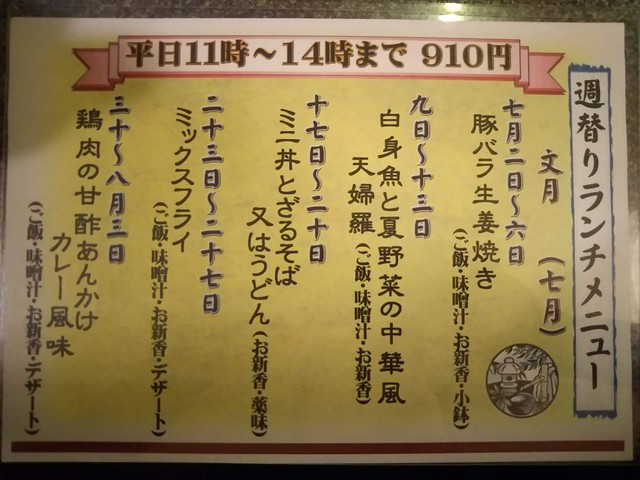 平日11時～14時まで 910円
週替りランチメニュー
文月 (七月)
七月二日～六日
豚バラ生姜焼き
(ご飯・味噌汁・お新香・小鉢)
九日～十三日
白身魚と夏野菜の中華風
天婦羅(ご飯・味噌汁・お新香)
十七日～二十日
ミニ丼とざるそば
又はうどん(お新香・薬味)
二十三日～二十七日
ミックスフライ
(ご飯・味噌汁・お新香・デザート)
三十～八月三日
鶏肉の甘酢あんかけ
カレー風味
(ご飯・味噌汁・お新香・デザート)